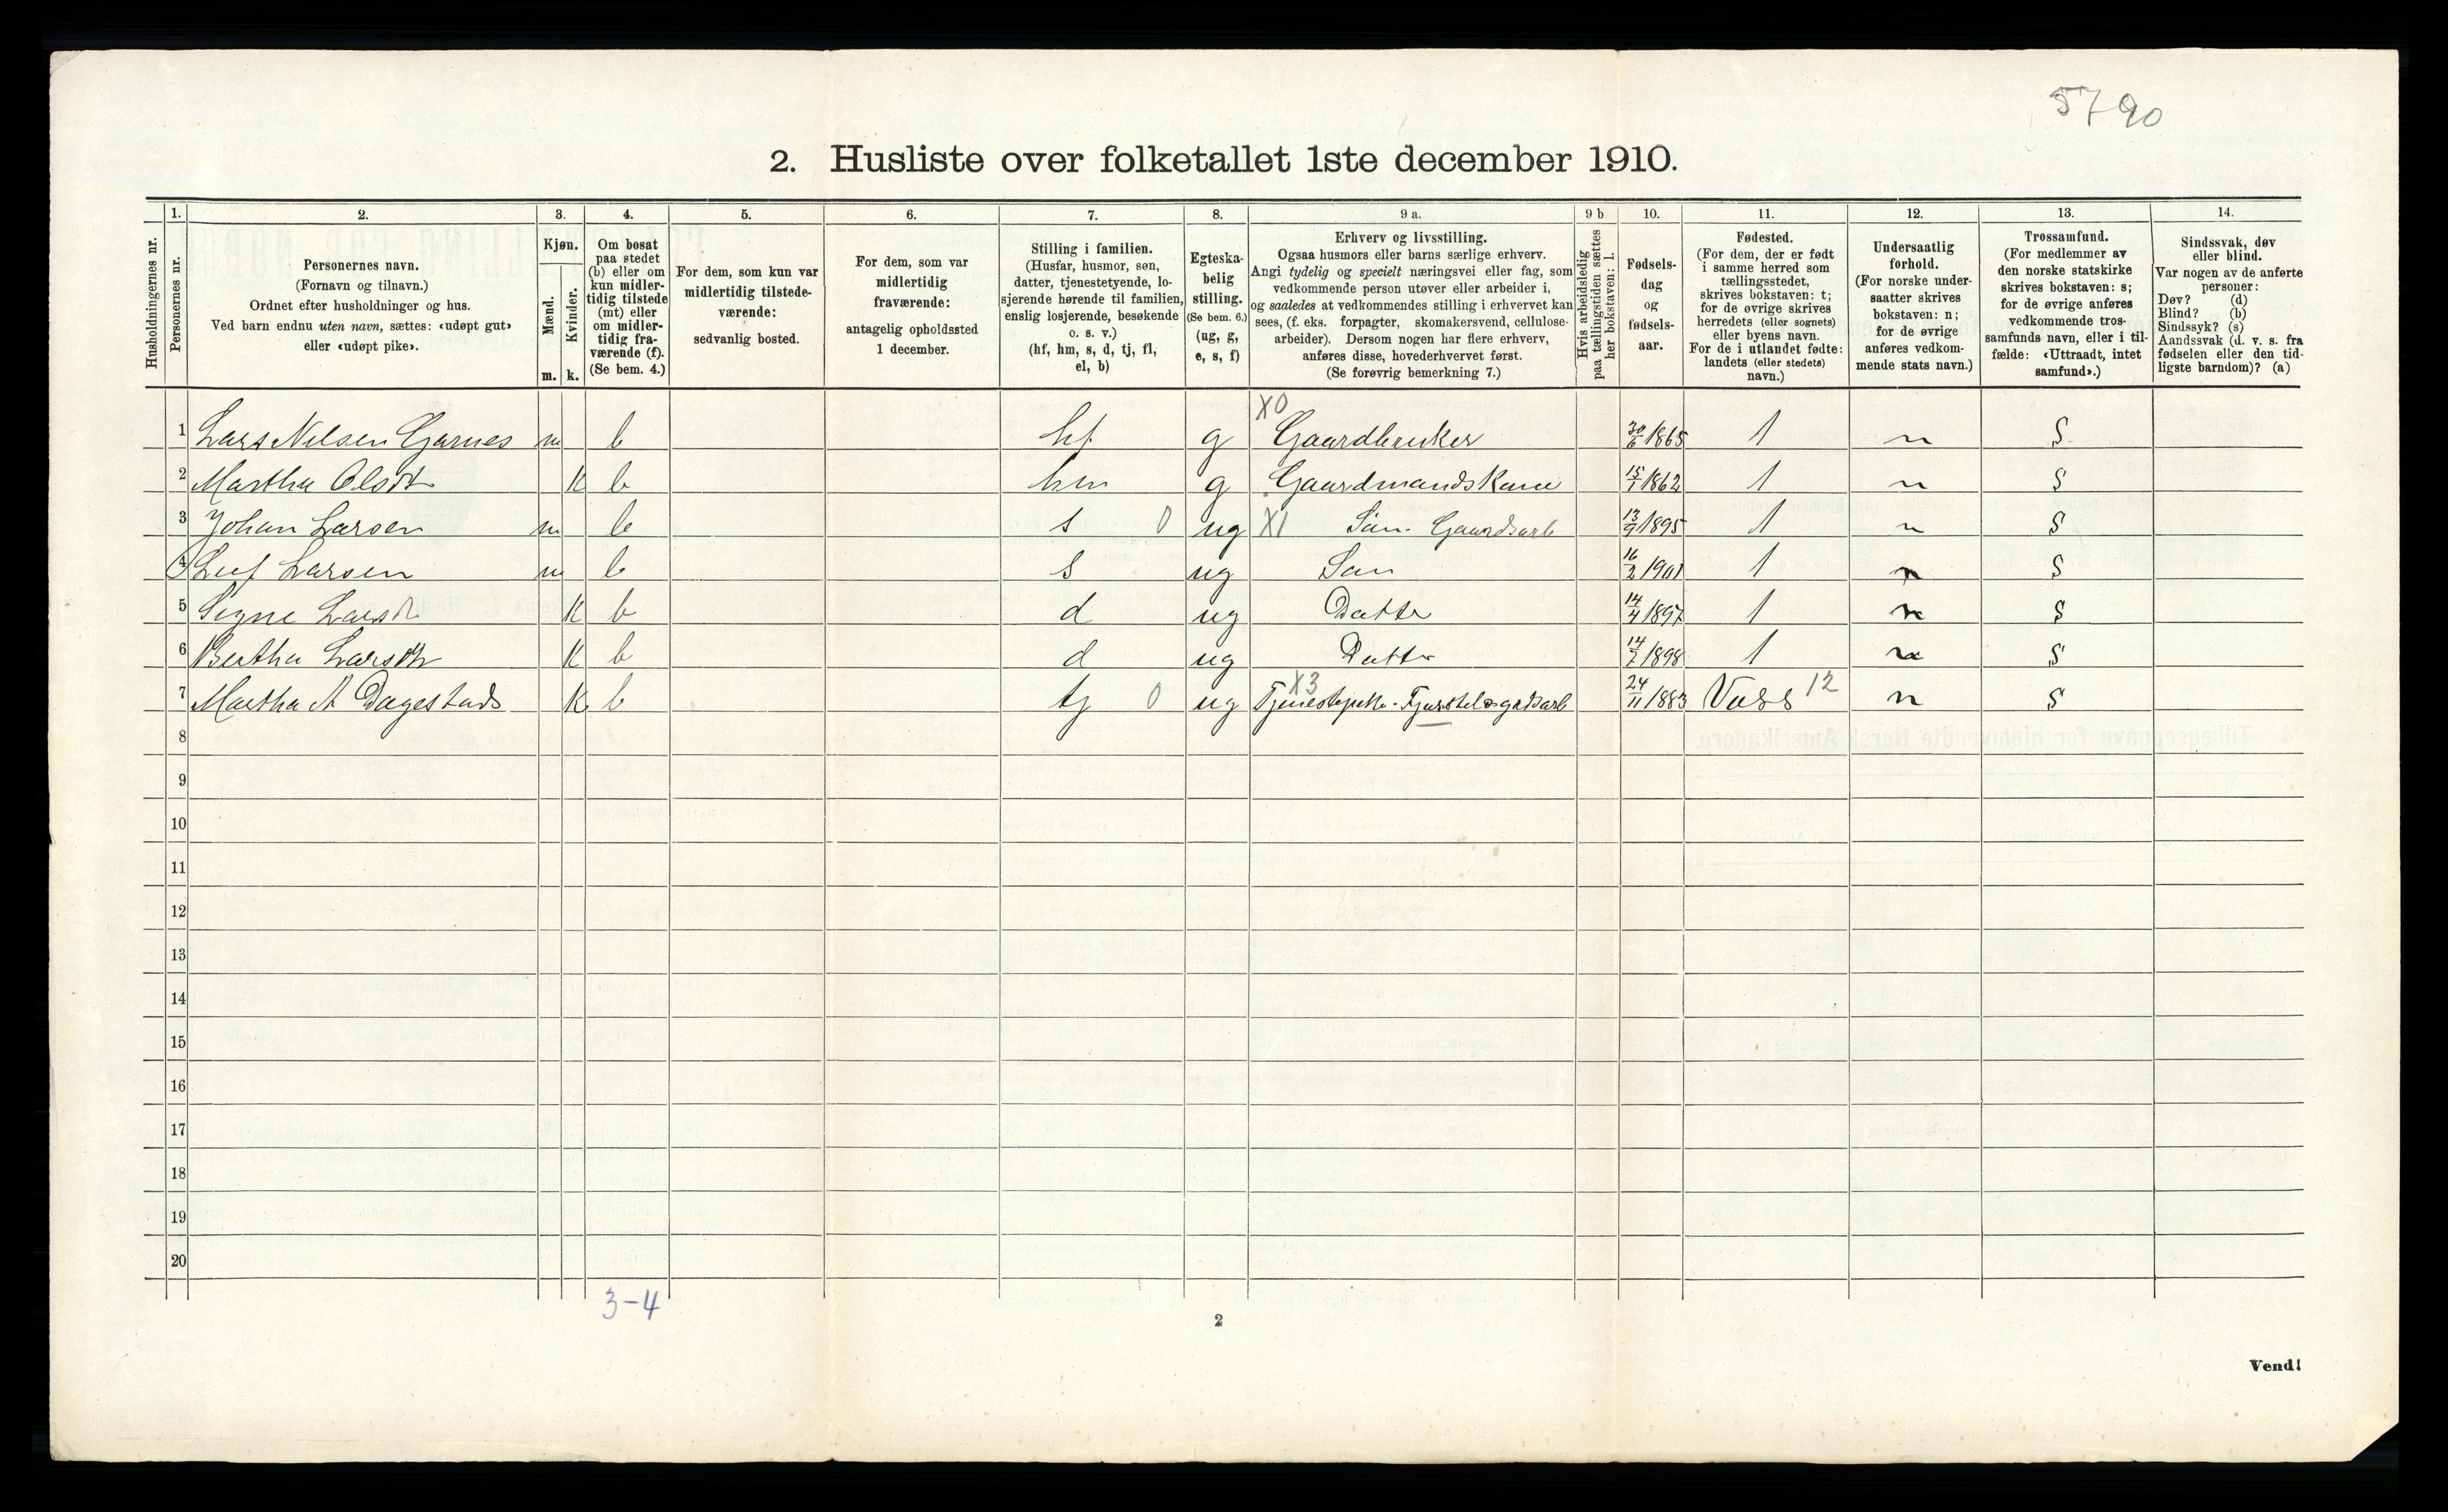 5790
2. Husliste over folketallet 1ste december 1910.
Husholdningernes nr.
1.
Personernes nr.
2.
Personernes navn.
(Fornavn og tilnavn.)
Ordnet efter husholdninger og hus.
Ved barn endnu uten navn, sættes: «udøpt gut»
eller «udøpt pike».
3.
Kjøn.
Mænd.
Kvinder.
m. k.
4.
Om bosat
paa stedet
(b) eller om
kun midler-
tidig tilstede
(mt) eller
om midler-
tidig fra-
værende (f).
(Se bem. 4.)
5.
For dem, som kun var
midlertidig tilstede-
værende:
sedvanlig bosted.
6.
For dem, som var
midlertidig
fraværende:
antagelig opholdssted
1 december.
7.
Stilling i familien.
(Husfar, husmor, søn,
datter, tjenestetyende, lo-
sjerende hørende til familien,
enslig losjerende, besøkende
o. s. v.)
(hf, hm, s, d, tj, fl,
el, b)
8.
Egteska-
belig
stilling.
(Se bem. 6.)
(ug, g,
e, s, f)
9 a.
Erhverv og livsstilling.
Ogsaa husmors eller barns særlige erhverv.
Angi tydelig og specielt næringsvei eller fag, som
vedkommende person utøver eller arbeider i,
og saaledes at vedkommendes stilling i erhvervet kan
sees, (f. eks. forpagter, skomakersvend, cellulose-
arbeider). Dersom nogen har flere erhverv,
anføres disse, hovederhvervet først.
(Se forøvrig bemerkning 7.)
9 b
Hvis arbeidsledig
paa tællingstiden sættes
her bokstaven: l.
10.
Fødsels-
dag
og
fødsels-
aar.
11.
Fødested.
(For dem, der er født
i samme herred som
tællingsstedet,
skrives bokstaven: t;
for de øvrige skrives
herredets (eller sognets)
eller byens navn.
For de i utlandet fødte:
landets (eller stedets)
navn.)
12.
Undersaatlig
forhold.
(For norske under-
saatter skrives
bokstaven: n;
for de øvrige
anføres vedkom-
mende stats navn.)
13.
Trossamfund.
(For medlemmer av
den norske statskirke
skrives bokstaven: s;
for de øvrige anføres
vedkommende tros-
samfunds navn, eller i til-
fælde: «Uttraadt, intet
samfund».)
14.
Sindssvak, døv
eller blind.
Var nogen av de anførte
personer:
Døv? (d)
Blind? (b)
Sindssyk? (s)
Aandssvak (d. v. s. fra
fødselen eller den tid-
ligste barndom)? (a)
X0
1 Lars Nilsen Garnes m b hf g Gaardbruker 30/6 1865 1 n S
2 Martha Olsdt K b hm g Gaardmandskone 15/1 1862 1 n S
3 Johan Larsen m b s 0 ug X1 Søn - Gaardsarb 13/9 1895 1 n S
4 Leif Larsen m b s ug Søn 16/2 1901 1 n S
5 Signe Larsdt K b d ug Datter 14/4 1897 1 n S
6 Bertha Larsdtr K b d ug Datter 14/7 1898 1 n S
X3
7 Martha A Dagestads K b tj 0 ug Tjenestepike - Fjøsstel & gardsarb 24/11 1883 Voss 12 n S
8
9
10
11
12
13
14
15
16
17
18
19
20
3-4
2
Vend!